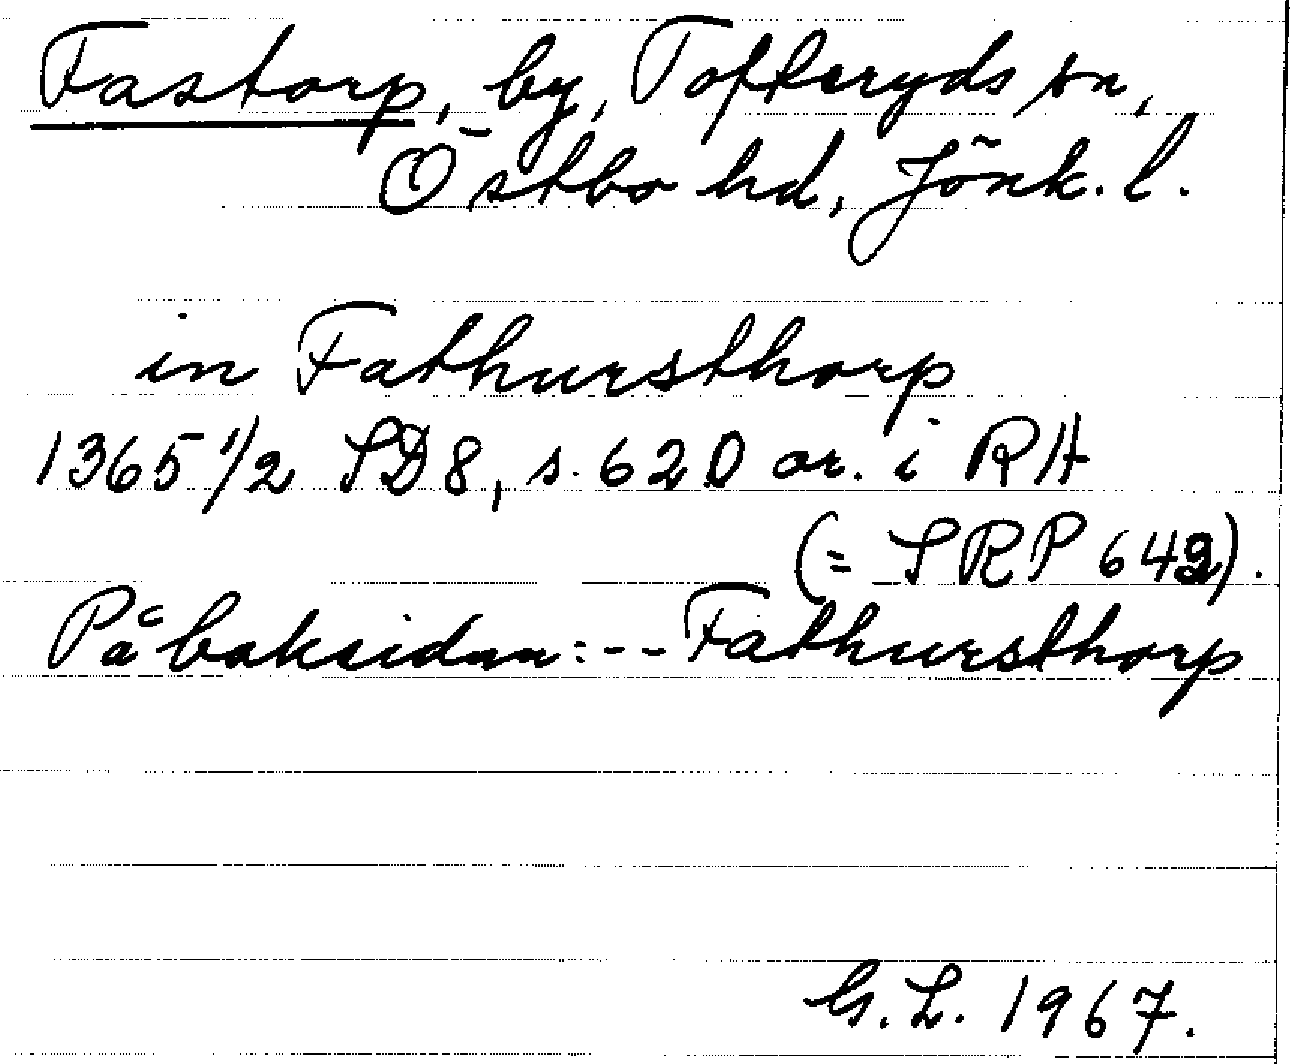 Fastorp, by, Tofteryds sn,
Östbo hd, Jönk. l.
in Fathursthorp
1365 1/2 SD8, s. 620 or. i RH
(= SRP 642).
På baksidan: -- Fathursthorp
G.L. 1967.